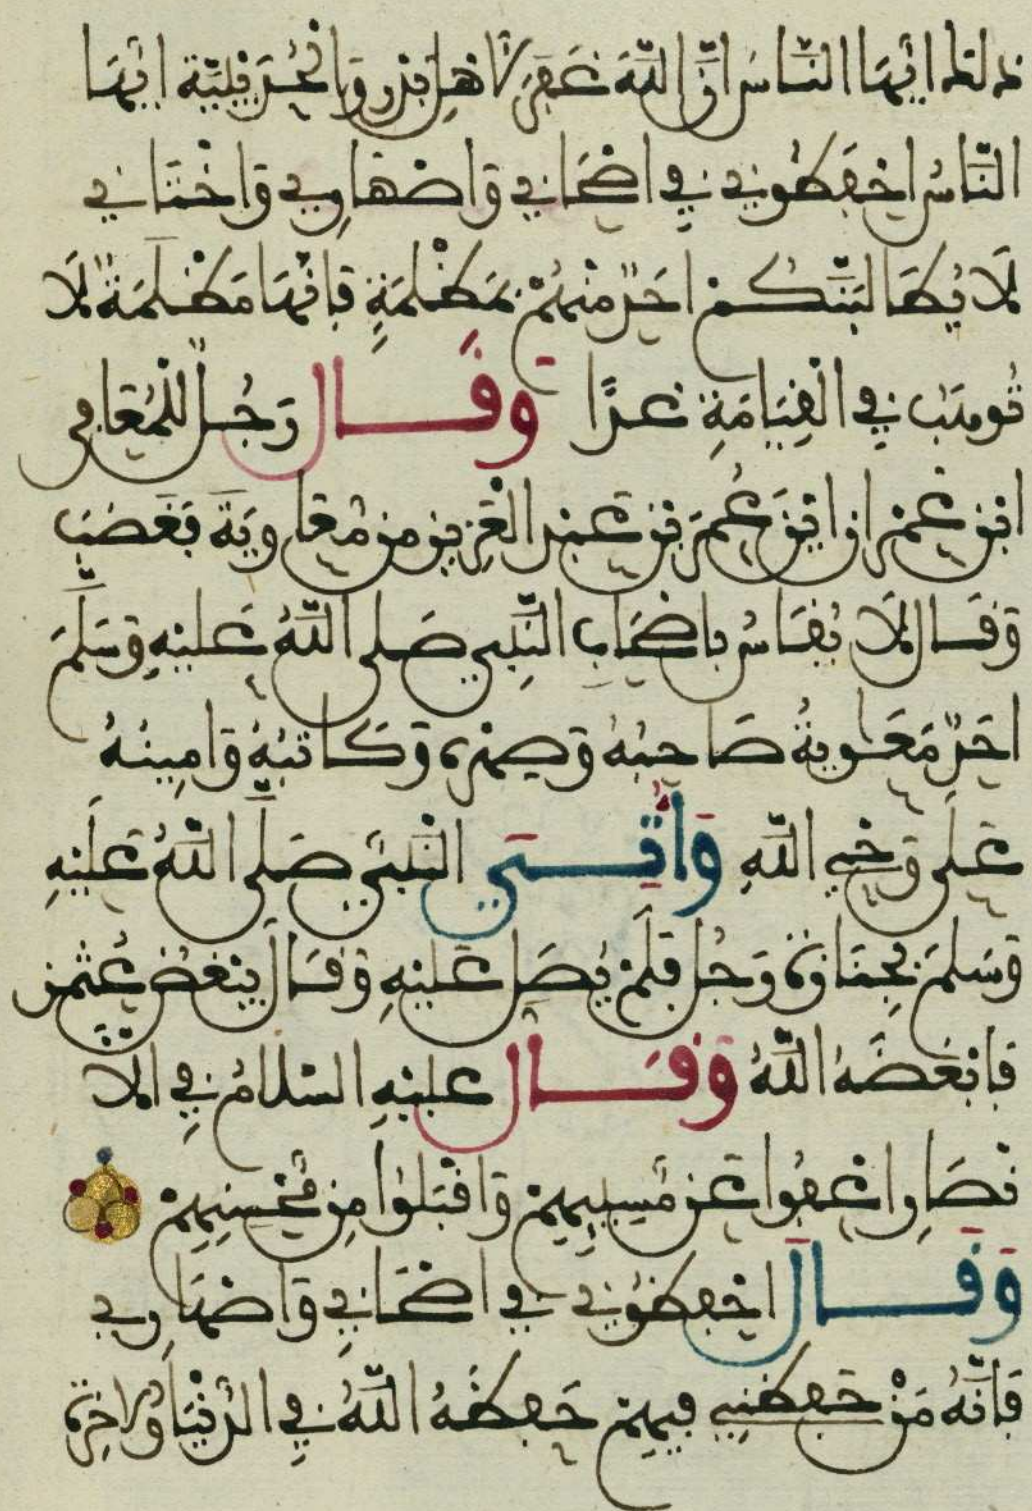 ذلك لهم ايّها النّاس انّ اللّه غفر لاهل بدر والحُدَيْبيّة ايّها
النّاسُ احفظوني في اصحابي واصهاري واختاني
لَا يُطالبَنَّكُمْ احَدٌ منهُمْ بمَظْلمَةٍ فانّها مَظْلمَةٌ لَا
تُوهَبُ في الْقِيَامَةِ غدًا وقَال رَجُلٌ للْمُعَافى
ابن عمْران اينَ عُمَرُ بن عبْد الْعَزِيز من مُعاويَةَ فغَضبَ
وقال لَا يُقَاسُ باصحاب النّبِي صلى اللّهُ عليْهِ وسَلّمَ
احَدٌ مُعَاويةُ صَاحبُهُ وصِهْرهُ وكاتبُهُ وامِينُهُ
على وحْيِ اللّهِ وَأُتِيَ النّبيُّ صَلَّى اللّهُ عَلَيْهِ
وسَلمَ بجِنَازة رَجُل فلَمْ يُصَل عَليْهِ وقَالَ يبْغضُ عُثْمٰن
فابْغَضَهُ اللّهُ وقَال عليْهِ السّلامُ في الا
نْصَارِ اعْفُوا عن مُسِيئِهِمْ واقْبَلُوا مِن مُحْسِنِهِمْ
وقَالَ احْفظوني في اصْحَابِي واصْهَارِي
فانّهُ مَنْ حَفِظَنِي فيهِمْ حَفِظَهُ اللّهُ في الدُّنْيَا والاخِرة